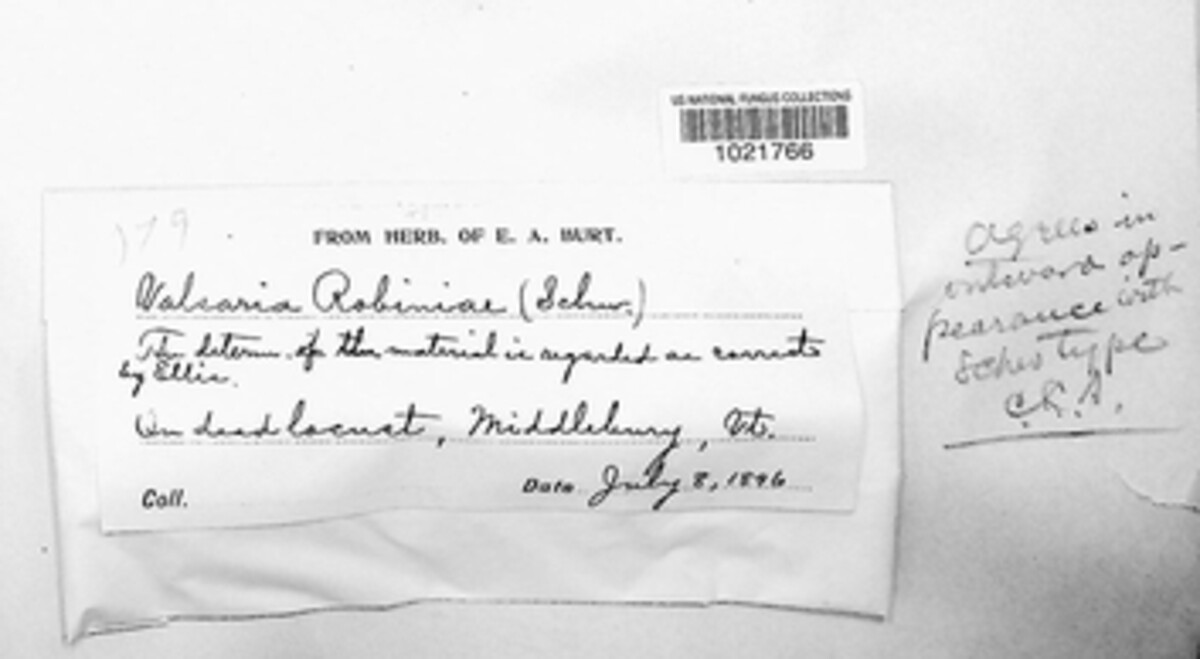 US NATIONAL FUNGUS COLLECTIONS
1021766
179
FROM HERB. OF E. A. BURT.
Valsaria Robiniae (Schw.)
The determ. of this material is regarded as correct
by Ellis.
On dead locust, Middlebury, Vt.
Coll.
Date July 8, 1896
agrees in
outward ap-
pearance with
Schw type